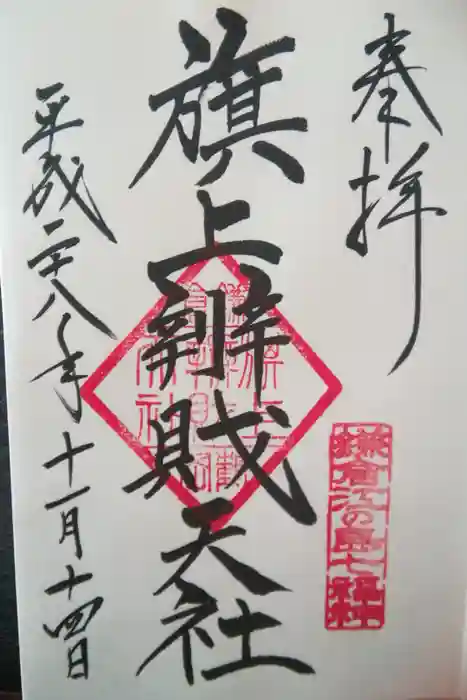 奉拝
鎌倉江の島七福神
旗上辨財天社
平成二十八年十一月十四日